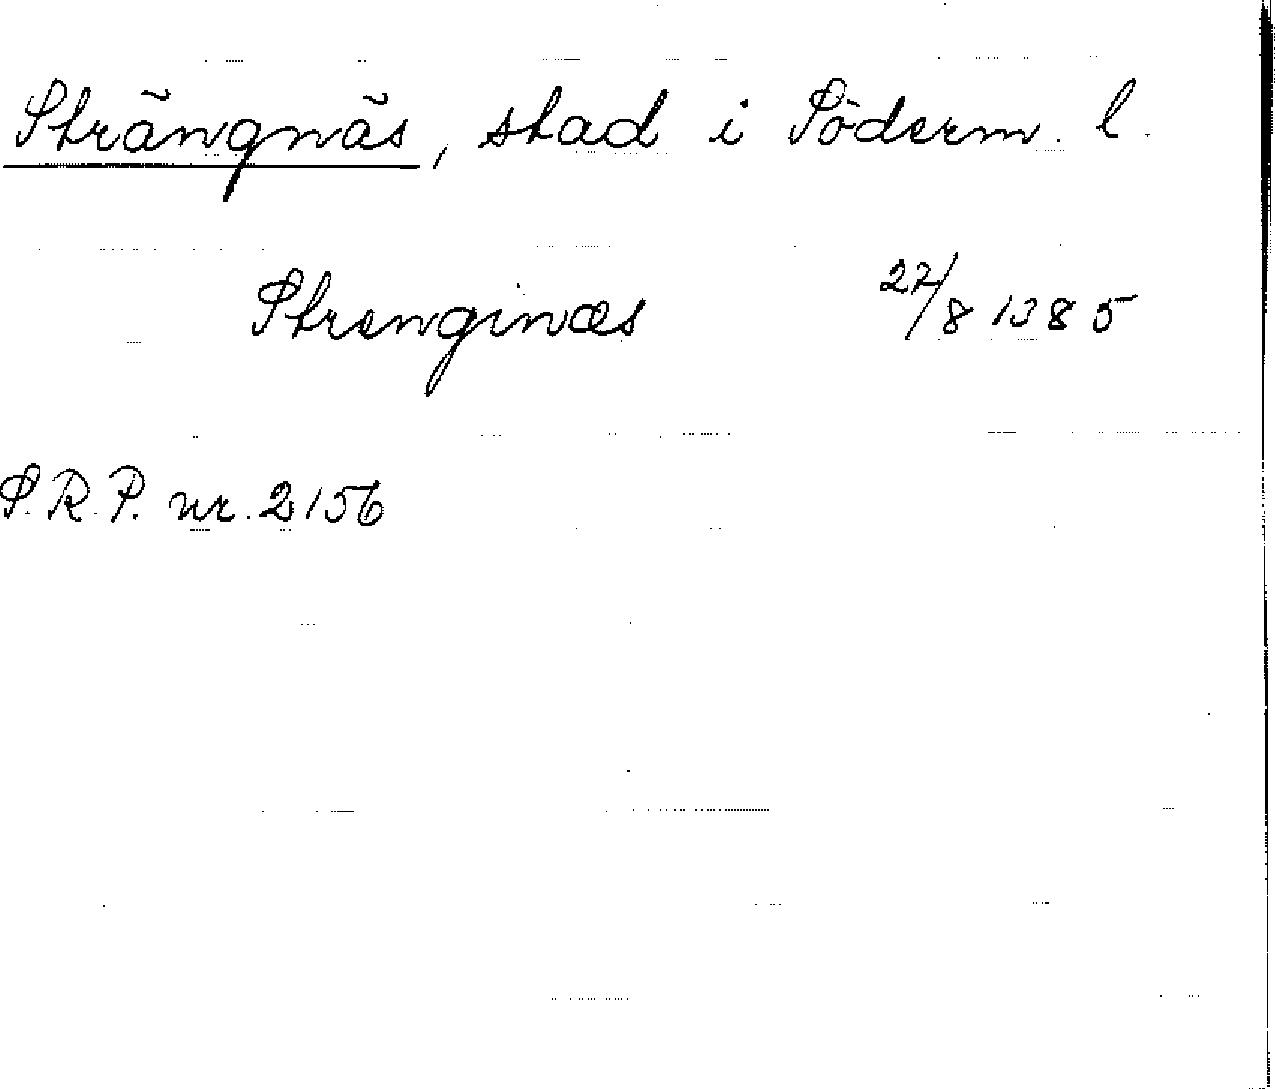 Strängnäs, stad i Söderm. l.
Strenginæs 27/8 1385
S.R.P. nr. 2156